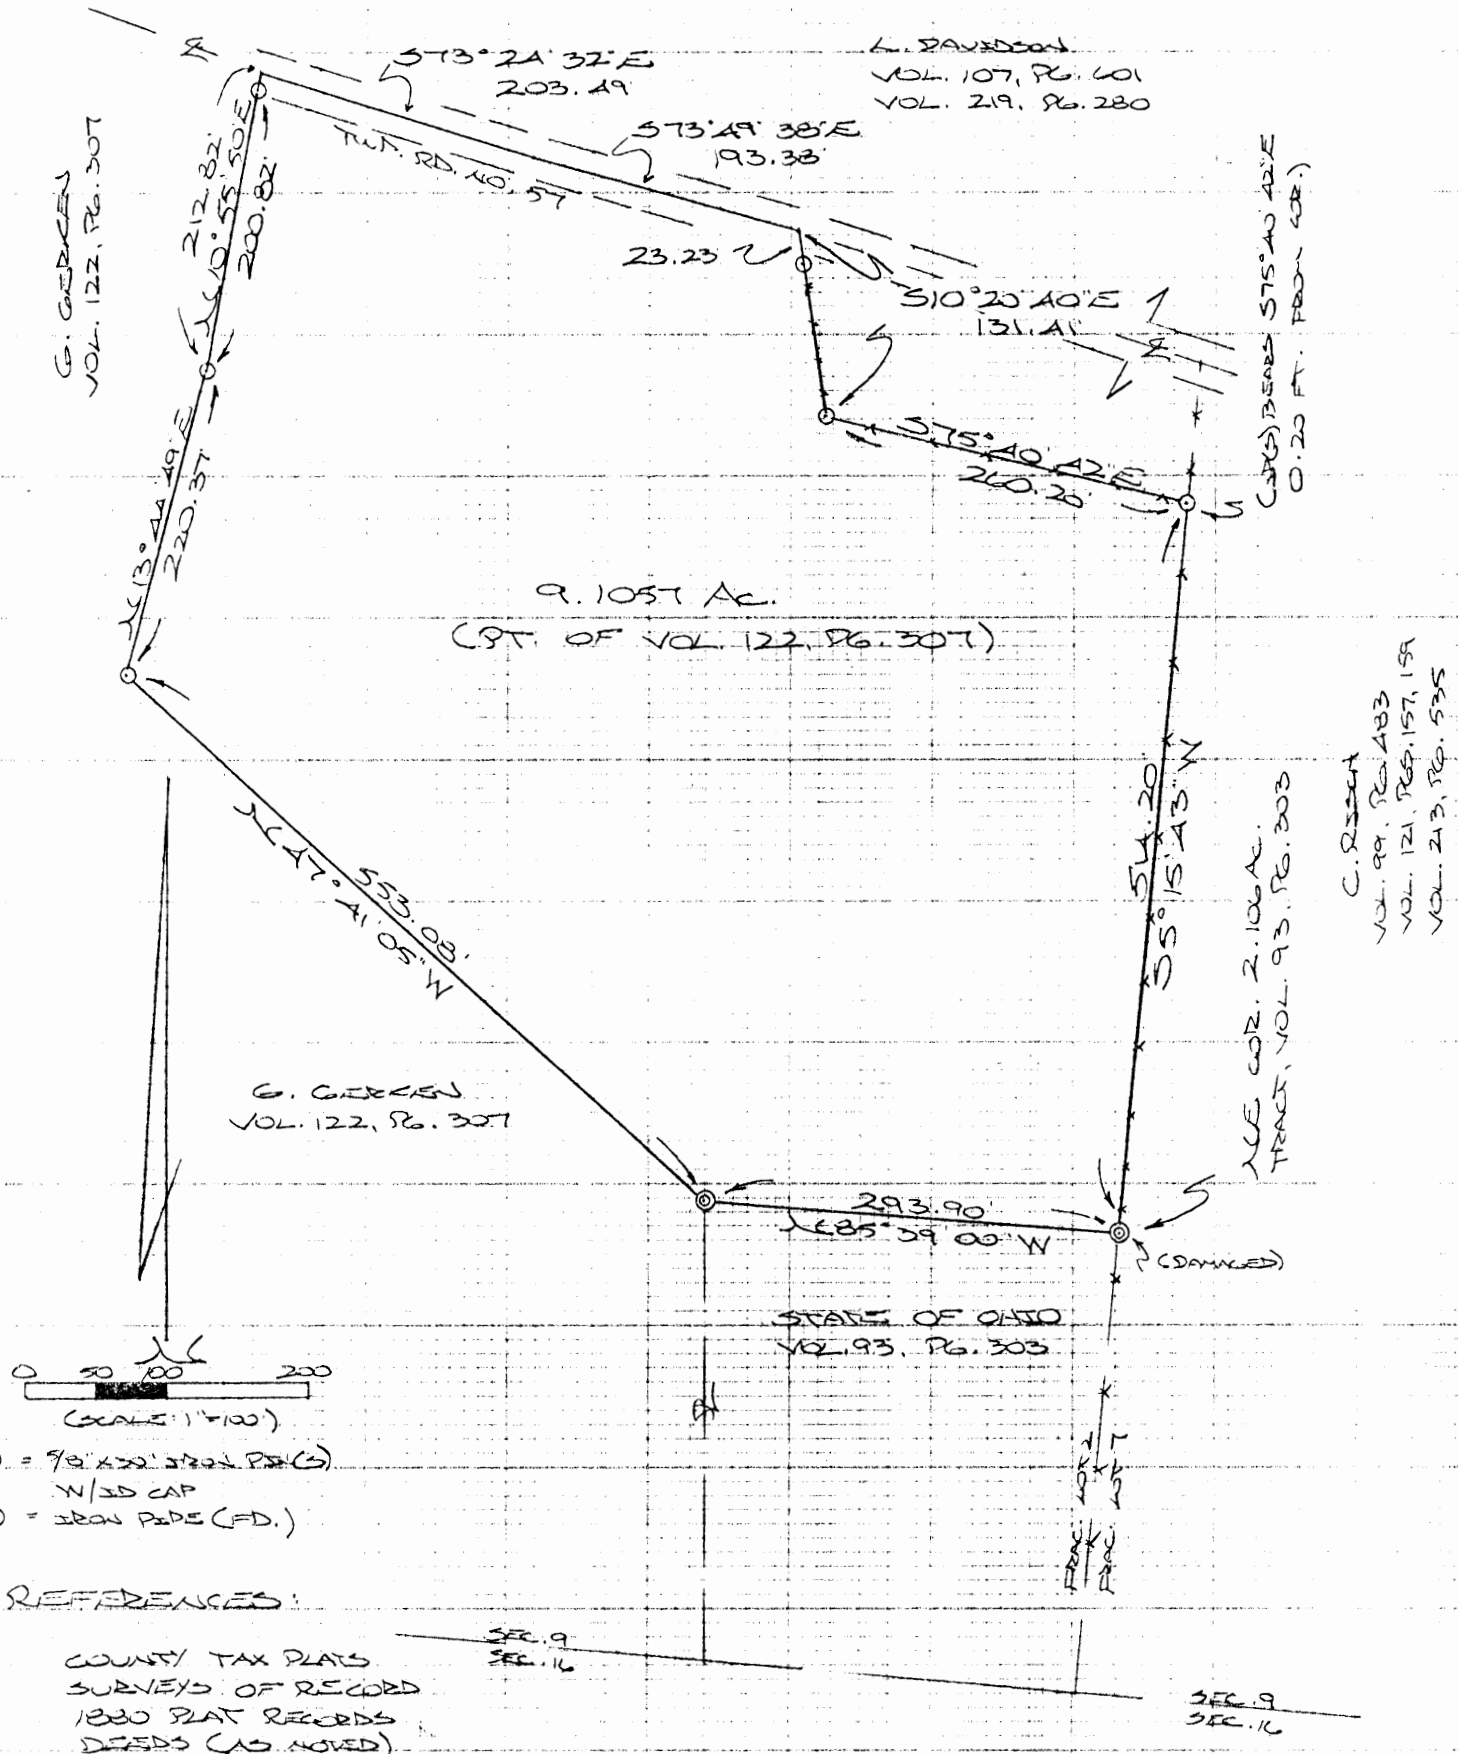 S73°24'32"E
203.49'
L. DAVIDSON
VOL. 107, PG. 601
VOL. 219, PG. 280
S73°49'38"E
193.38'
TWP. RD. NO. 57
G. GERKEN
VOL. 122, PG. 307
212.82'
N10°55'50"E
200.82'
23.23
S10°20'40"E
131.41'
BEARS S75°40'42"E
0.20 FT. FROM COR.)
S75°40'42"E
260.20'
N13°44'49"E
220.37'
9.1057 AC.
(PT. OF VOL. 122, PG. 307)
514.20'
S5°15'43"W
553.08'
N47°41'05"W
C. RISCH
VOL. 99, PG. 483
VOL. 121, PGS. 157, 159
VOL. 213, PG. 535
NE COR. 2.106 AC.
TRACT, VOL. 93, PG. 303
G. GERKEN
VOL. 122, PG. 307
293.90'
N85°39'00"W
(DAMAGED)
STATE OF OHIO
VOL. 93, PG. 303
N
0 50 100 200
(SCALE: 1"=100')
= 5/8"X30" IRON PIN(S)
W/ID CAP
= IRON PIPE (FD.)
FRAC. LOT 2
FRAC. LOT 7
REFERENCES:
COUNTY TAX PLATS
SURVEYS OF RECORD
1880 PLAT RECORDS
DEEDS (AS NOTED)
SEC. 9
SEC. 16
SEC. 9
SEC. 16